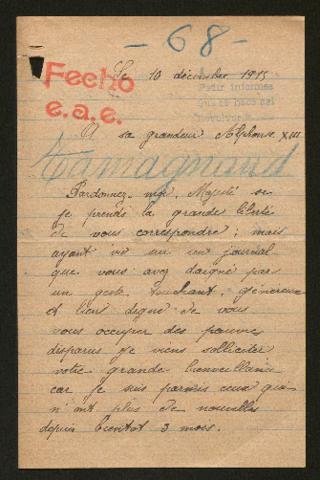 - 68 -
Fecho
e.a.e.
Le 10 décember 1915
Pedir informes
que se hace así
A sa grandeur Alphonse XIII
Tamagnaud
Pardonnez-moi, Majesté se
je prends la grande liberté
de vous correspondre; mais
ayant vu sur un journal
que vous avez daigné par
un geste, touchant, généreux
et bien digne de vous
vous occuper des pauvres
disparus je viens solliciter
votre grande bienveillance
car je suis parmis ceux qui
n'ont plus de nouvelles
depuis bientot 3 mois.